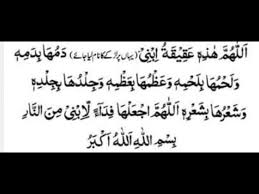 اَللّٰهُمَّ هٰذِهٖ عَقِيْقَةُ اِبْنِیْ (یہاں پر لڑکے کا نام لیا جائے) دَمُهَا بِدَمِهٖ
وَلَحْمُهَا بِلَحْمِهٖ وَعَظْمُهَا بِعَظْمِهٖ وَجِلْدُهَا بِجِلْدِهٖ
وَشَعْرُهَا بِشَعْرِهٖ اَللّٰهُمَّ اجْعَلْهَا فِدَآءً لِّاِبْنِیْ مِنَ النَّارِ
بِسْمِ اللّٰهِ اَللّٰهُ اَكْبَرُ